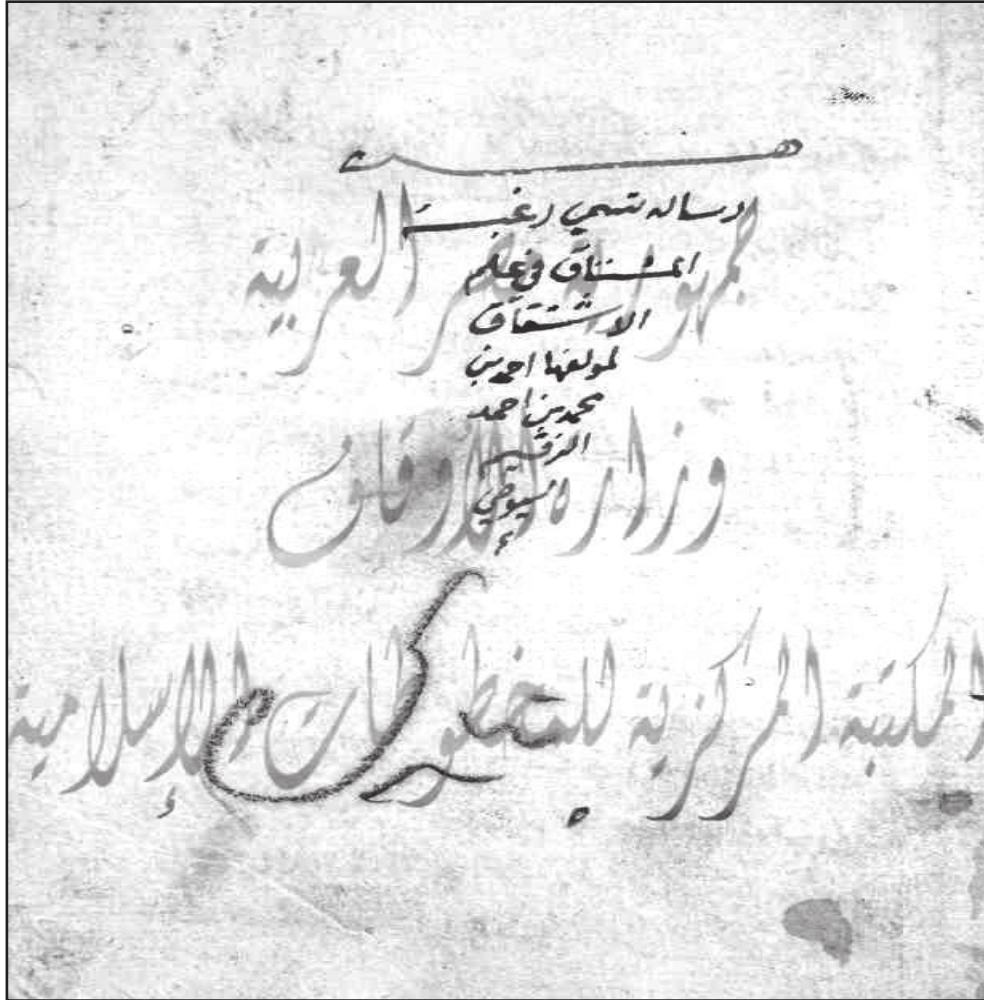 هذه
رسالة تسمي رغبة
المشتاق في علم
الاشتقاق
لمولفها احمد بن
محمد بن احمد
جمهورية مصر العربية
وزارة الأوقاف
المكتبة المركزية للمخطوطات الإسلامية